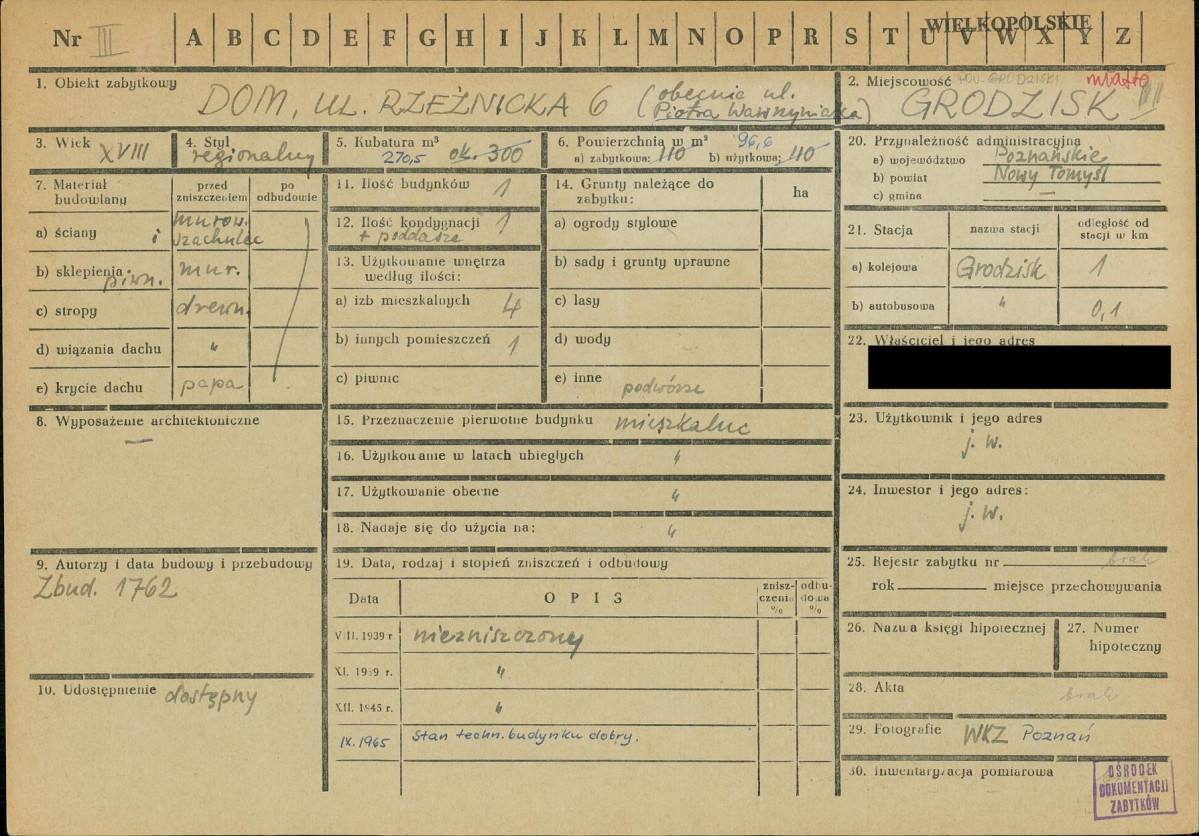 Nr III A B C D E F G H I J K L M N O P R S T U V W X Y Z
WIELKOPOLSKIE
1. Obiekt zabytkowy
DOM, UL. RZEŹNICKA 6 (obecnie ul.
Piotra Wawrzyniaka)
2. Miejscowość POW. GRODZISKI miasto
GRODZISK
3. Wiek
XVIII
4. Styl
regionalny
5. Kubatura m³
270,5 ok. 300
6. Powierzchnia w m² 96,6
a) zabytkowa: 110 b) użytkowa: 110
20. Przynależność administracyjna
a) województwo Poznańskie
b) powiat Nowy Tomyśl
c) gmina —
7. Materiał
budowlany
przed
zniszczeniem
po
odbudowie
a) ściany murow.
i szachulec
b) sklepienia mur.
piwn.
c) stropy drewn.
d) wiązania dachu "
e) krycie dachu papa
11. Ilość budynków 1
12. Ilość kondygnacji 1
+ poddasze
13. Użytkowanie wnętrza
według ilości:
a) izb mieszkalnych 4
b) innych pomieszczeń 1
c) piwnic
14. Grunty należące do
zabytku:
ha
a) ogrody stylowe
b) sady i grunty uprawne
c) lasy
d) wody
e) inne podwórze
21. Stacja
nazwa stacji
odległość od
stacji w km
a) kolejowa Grodzisk 1
b) autobusowa " 0,1
22. Właściciel i jego adres
8. Wyposażenie architektoniczne
—
15. Przeznaczenie pierwotne budynku mieszkalne
16. Użytkowanie w latach ubiegłych "
17. Użytkowanie obecne "
18. Nadaje się do użycia na: "
23. Użytkownik i jego adres
j. w.
24. Inwestor i jego adres:
j. w.
9. Autorzy i data budowy i przebudowy
Zbud. 1762
10. Udostępnienie dostępny
19. Data, rodzaj i stopień zniszczeń i odbudowy
Data
OPIS
znisz-
czenia
%
odbu-
dowa
%
VIII. 1939 r. niezniszczony
XI. 1939 r. "
XII. 1945 r. "
IX. 1965 Stan techn. budynku dobry.
25. Rejestr zabytku nr brak
rok miejsce przechowywania
26. Nazwa księgi hipotecznej
27. Numer
hipoteczny
28. Akta brak
29. Fotografie WKZ Poznań
30. Inwentaryzacja pomiarowa
OŚRODEK
DOKUMENTACJI
ZABYTKÓW